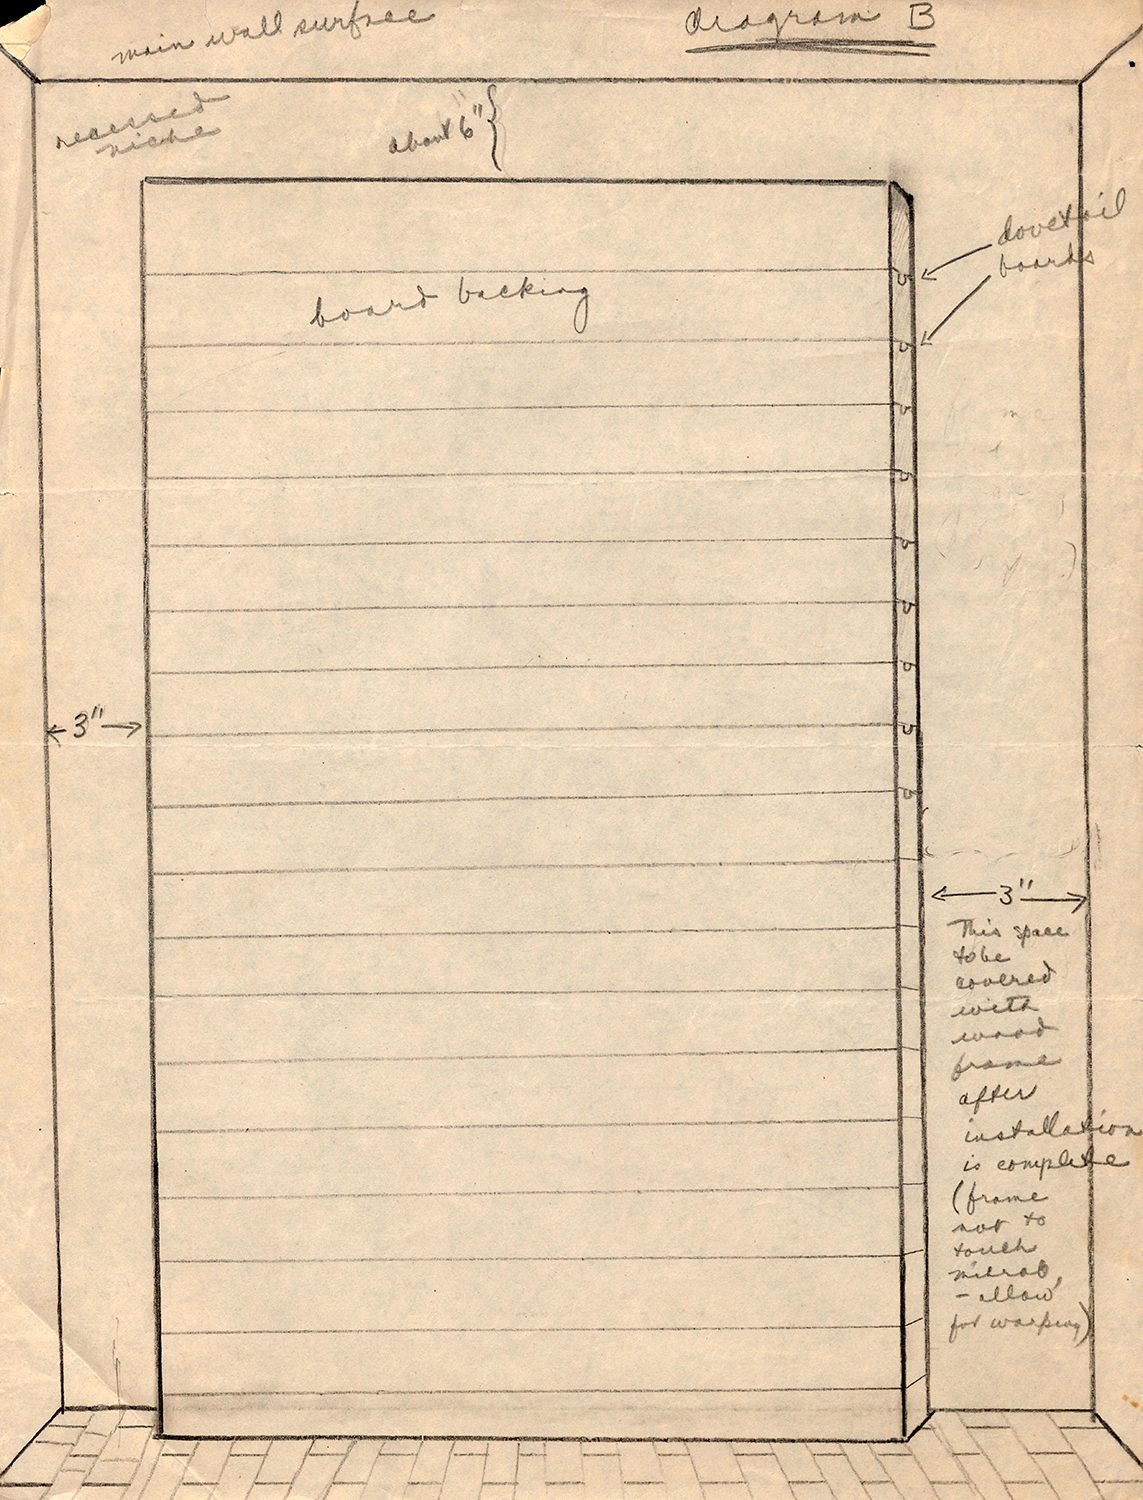 main wall surface
diagram B
recessed
niche
about 6"
dovetail
boards
board backing
3"
3"
This space
to be
covered
with
wood
frame
after
installation
is complete
(frame
not to
touch
- allow
for warping)